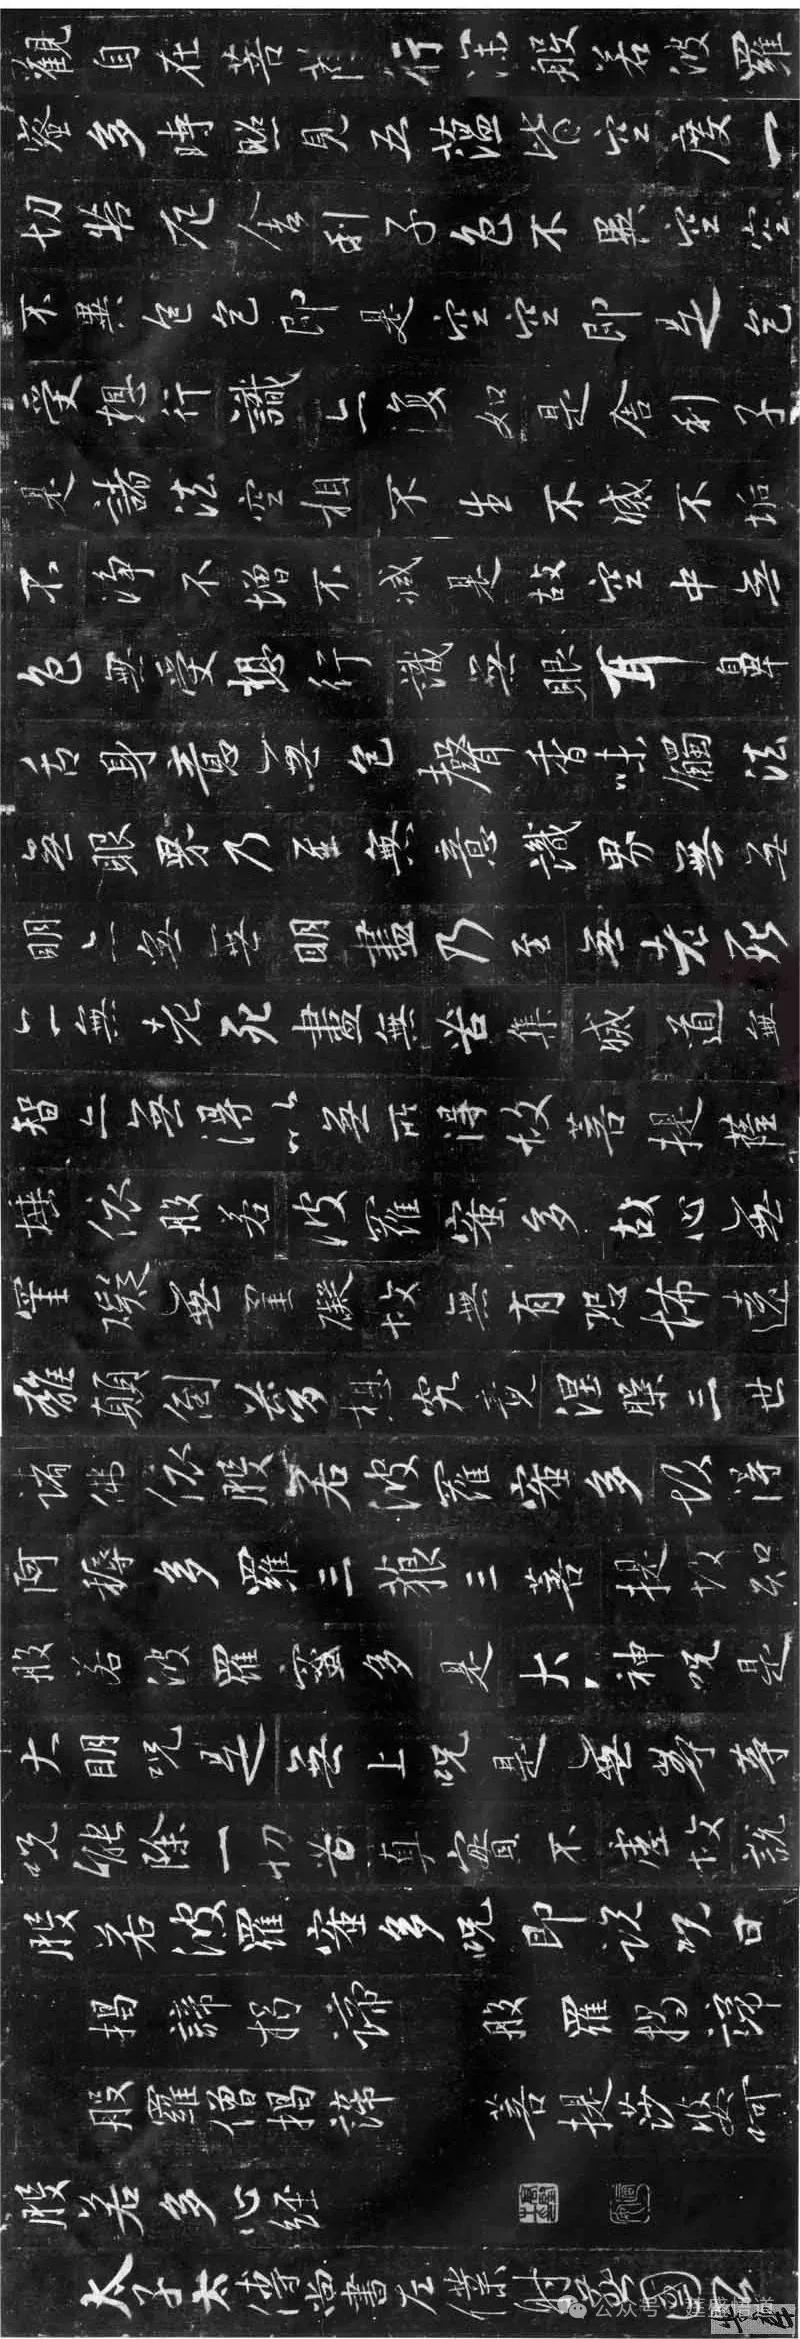 觀自在菩薩行深般若波羅
蜜多時照見五蘊皆空度一
切苦厄舍利子色不異空空
不異色色即是空空即是色
受想行識亦復如是舍利子
是諸法空相不生不滅不垢
不淨不增不減是故空中無
色無受想行識無眼耳鼻
舌身意無色聲香味觸法
無眼界乃至無意識界無無
明亦無無明盡乃至無老死
亦無老死盡無苦集滅道無
智亦無得以無所得故菩提薩
埵依般若波羅蜜多故心無
罣礙無罣礙故無有恐怖遠
離顛倒夢想究竟涅槃三世
諸佛依般若波羅蜜多故得
阿耨多羅三藐三菩提故知
般若波羅蜜多是大神咒是
大明咒是無上咒是無等等
咒能除一切苦真實不虛故說
般若波羅蜜多咒即說咒曰
揭諦揭諦 般羅揭諦
般羅僧揭諦 菩提莎婆呵
般若多心經
太子太傅尚書左僕射燕國公
公众号